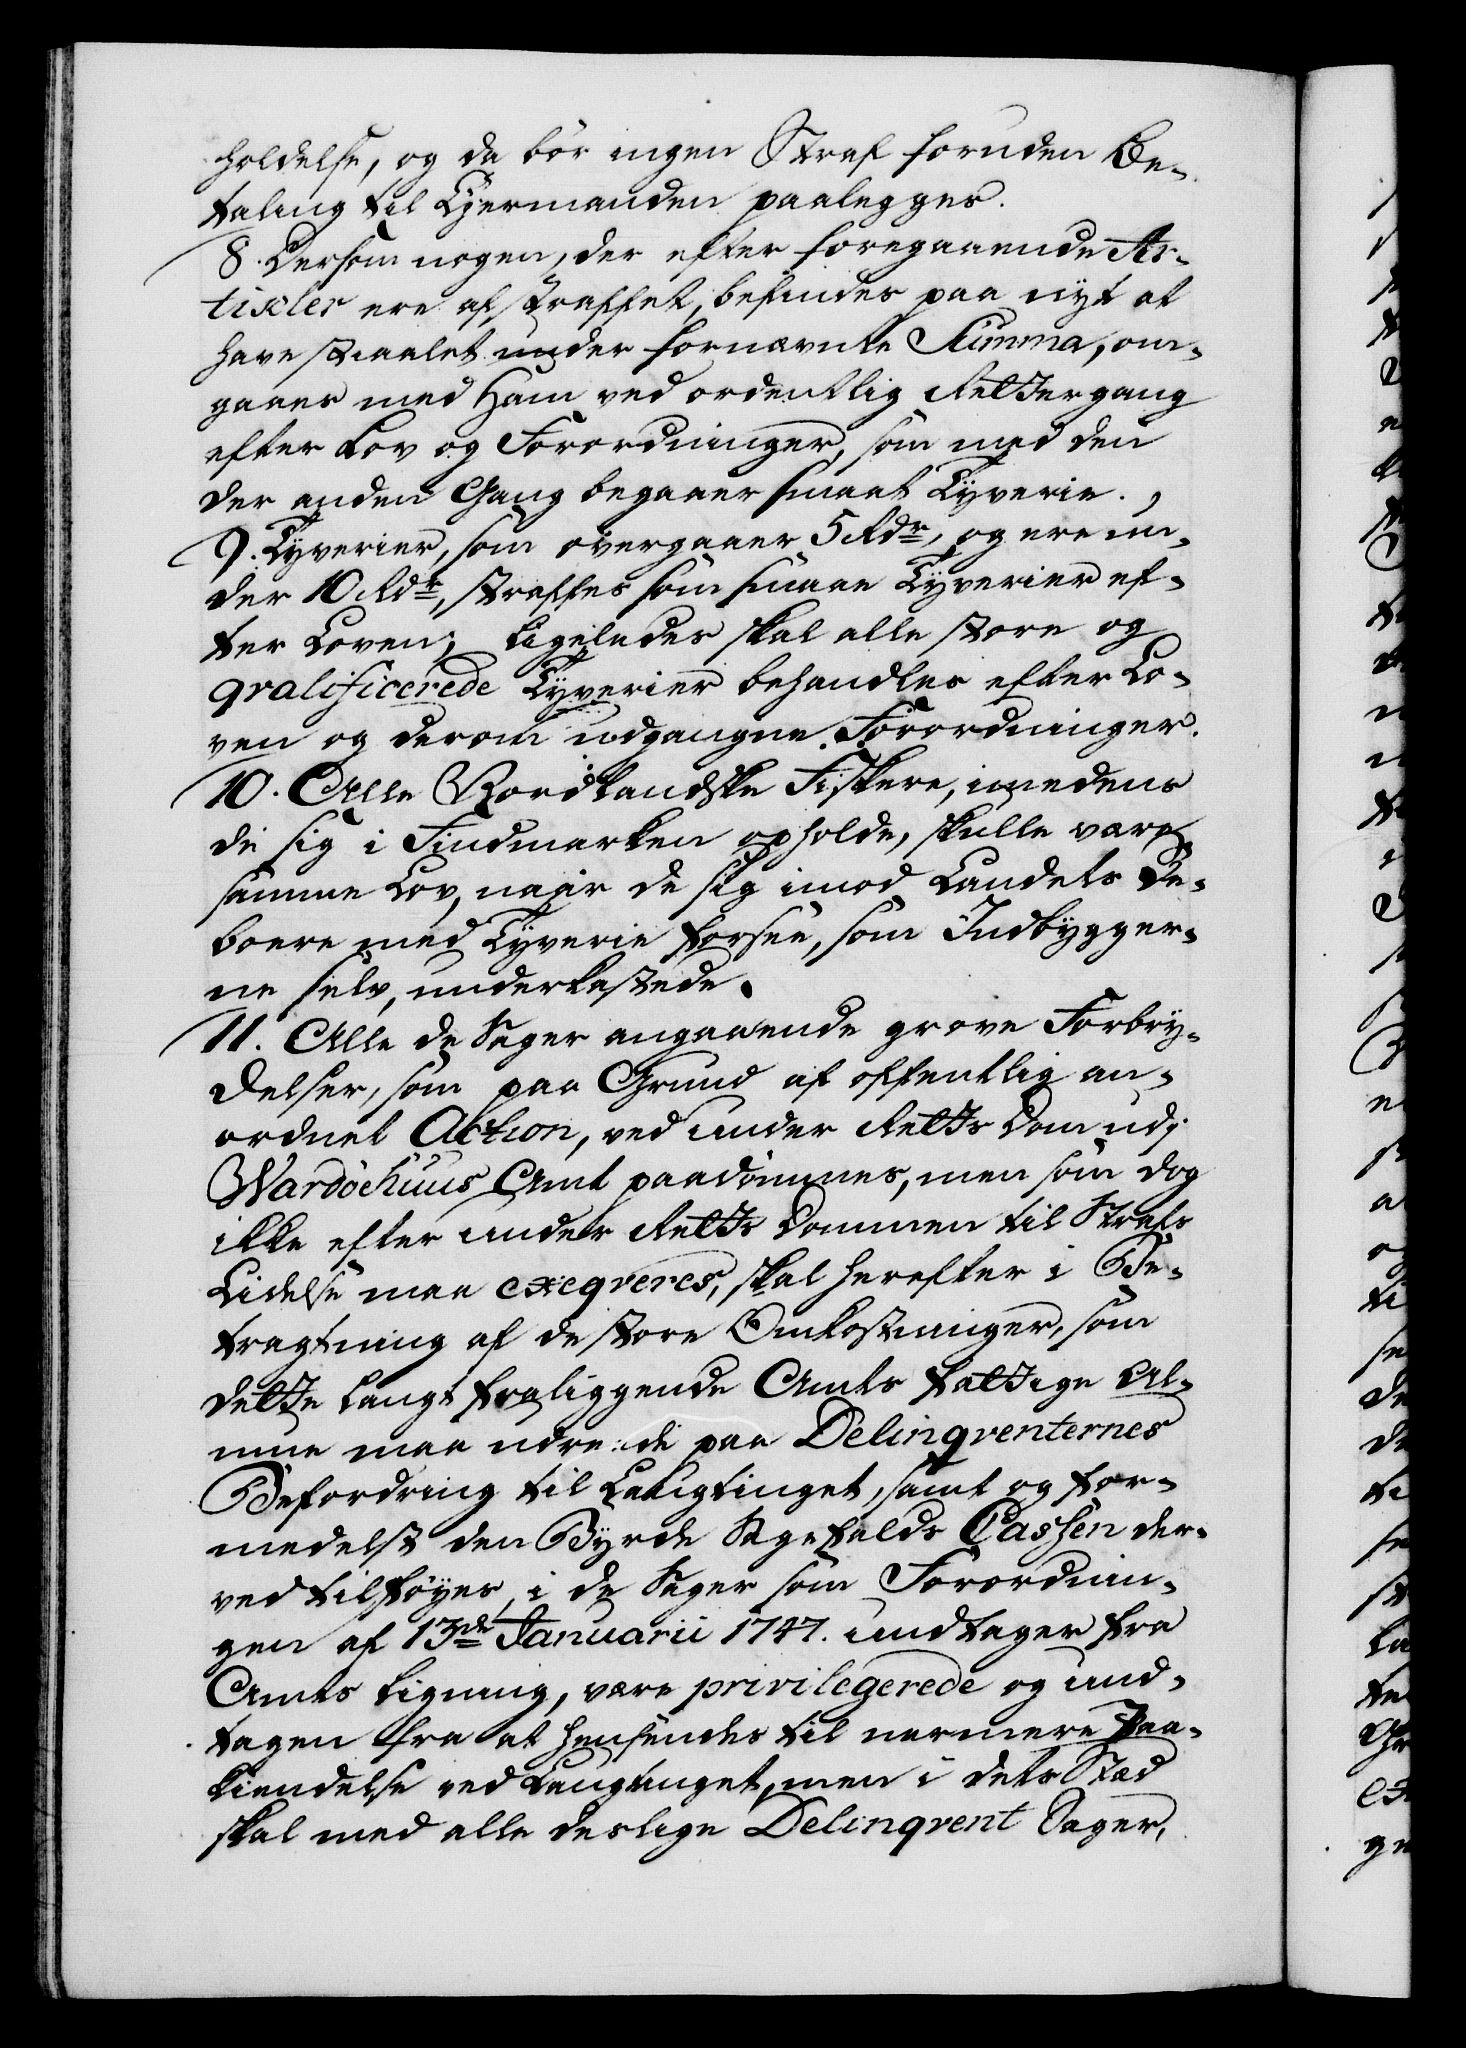 holdelse, og da bör ingen Straf foruden Be-
taling til Eyermanden paalegges.
8. Dersom nogen, der efter foregaaende Ar-
tikler ere afstraffet, befindes paa nyt at
have stiaalet under fornævnte Summa, om-
gaaes med Ham ved ordentlig Rettergang
efter Lov og Forordninger, som med den
der anden Gang begaaer smaat Tyverie.
9. Tyverier, som overgaaer 5 Rdr, og ere un-
der 10 Rdr, straffes som smaae Tyverier ef-
ter Loven; Ligeledes skal alle store og
qvalificerede Tyverier behandles efter Lo-
ven og derom udgangne Forordninger.
10. Alle Nordlandske Fiskere, imedens
de sig i Findmarken opholde, skulle være
samme Lov, naar de sig imod Landets Be-
boere med Tyverie forsee, som Indbygger-
ne selv, underkastede.
11. Alle de Sager angaaende grove Forbry-
delser, som paa Grund af offentlig an-
ordnet Action, ved under Retts Dom udj
Wardöehuus Amt paadömmes, men som dog
ikke efter under Retts Dommen til Straffs
Lidelse maa exeqveres, skal herefter i Be-
tragtning af de store Omkostninger, som
dette langt fraliggende Amts fattige Al-
mue maa udrede paa Delinqventernes
Befordring til Laugtinget, samt og for-
medelst den Byrde Sagefalds Cassen der-
ved tilföyes, i de Sager som Forordnin-
gen af 13de Januarii 1747. undtager fra
Amts Ligning, være privilegerede og und-
tagen fra at hensendes til nærmere Paa-
kiendelse ved Laugtinget, men i dets Sted
skal med alle deslige Delinqvent Sager,